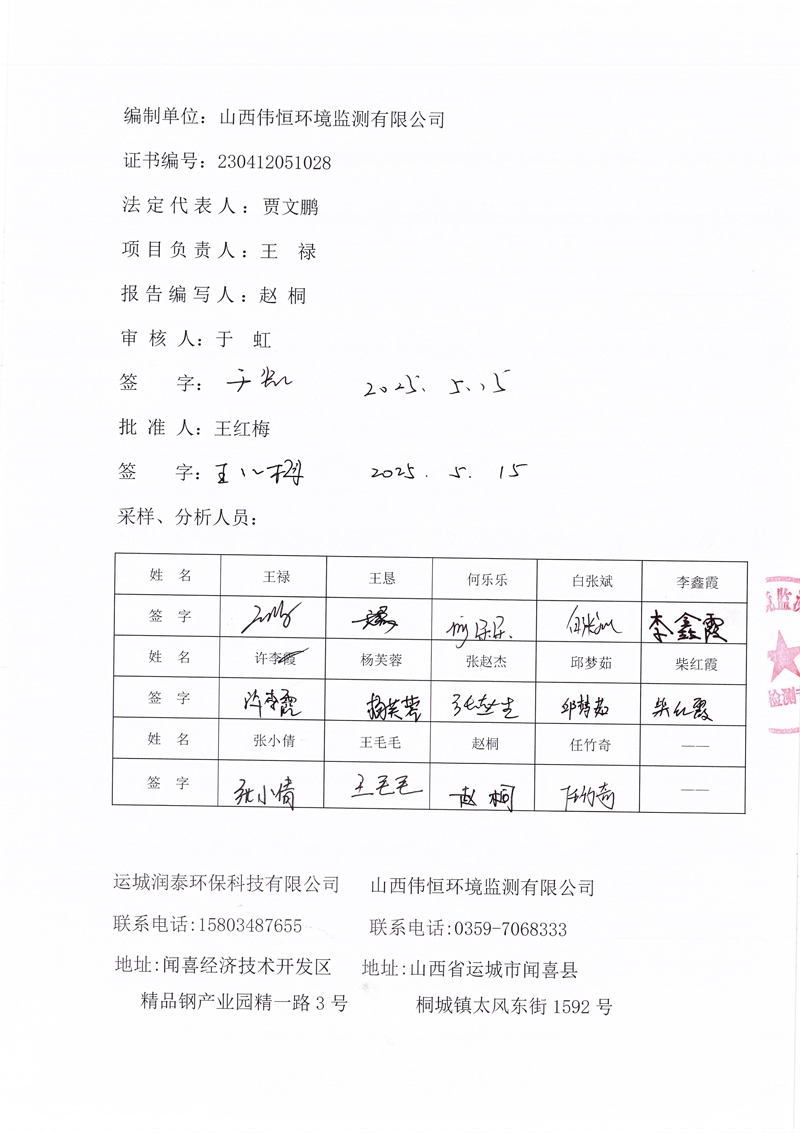 编制单位：山西伟恒环境监测有限公司
证书编号：230412051028
法定代表人：贾文鹏
项目负责人：王 禄
报告编写人：赵 桐
审 核 人：于 虹
签 字： 2025.5.15
批 准 人：王红梅
签 字： 2025.5.15
采样、分析人员：
姓 名 王禄 王恳 何乐乐 白张斌 李鑫霞
签 字 李鑫霞
姓 名 许李霞 杨芙蓉 张赵杰 邱梦茹 柴红霞
签 字 许李霞 杨芙蓉 邱梦茹 柴红霞
姓 名 张小倩 王毛毛 赵桐 任竹奇 ——
签 字 张小倩 王毛毛 赵桐 任竹奇 ——
监测
检测
运城润泰环保科技有限公司 山西伟恒环境监测有限公司
联系电话:15803487655 联系电话:0359-7068333
地址:闻喜经济技术开发区 地址:山西省运城市闻喜县
精品钢产业园精一路 3 号 桐城镇太风东街 1592 号